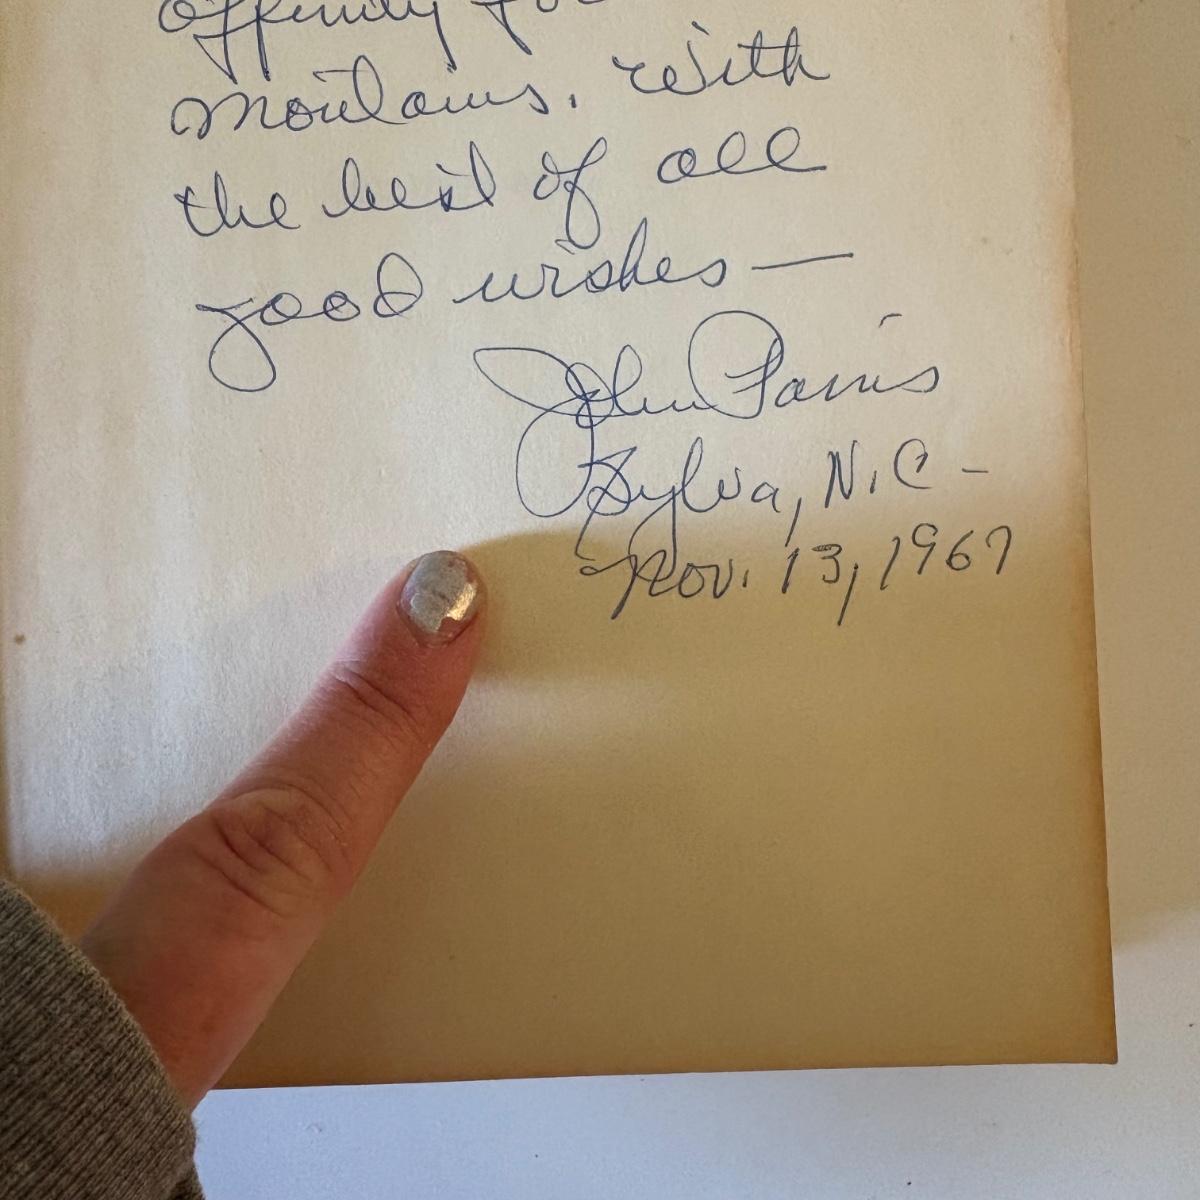 affinity for
mountains. With
the best of all
good wishes—
John Parris
Sylva, N.C –
Nov. 13, 1967